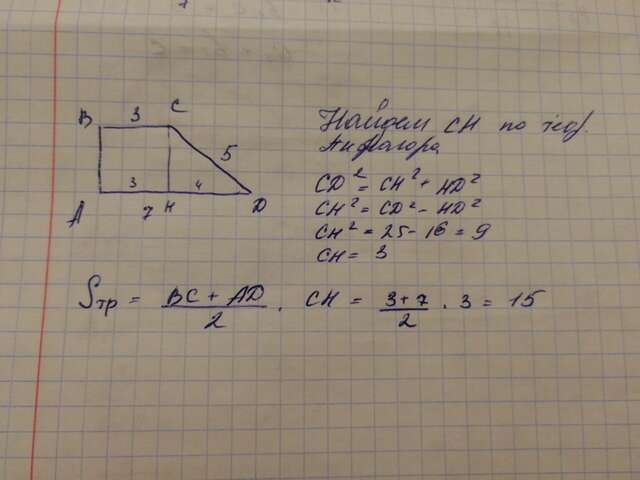 B 3 C
5
3 4
A 7 H D
Найдем CH по теор.
Пифагора
CD² = CH² + HD²
CH² = CD² - HD²
CH² = 25 - 16 = 9
CH = 3
Sтр = BC + AD / 2 · CH = 3 + 7 / 2 · 3 = 15